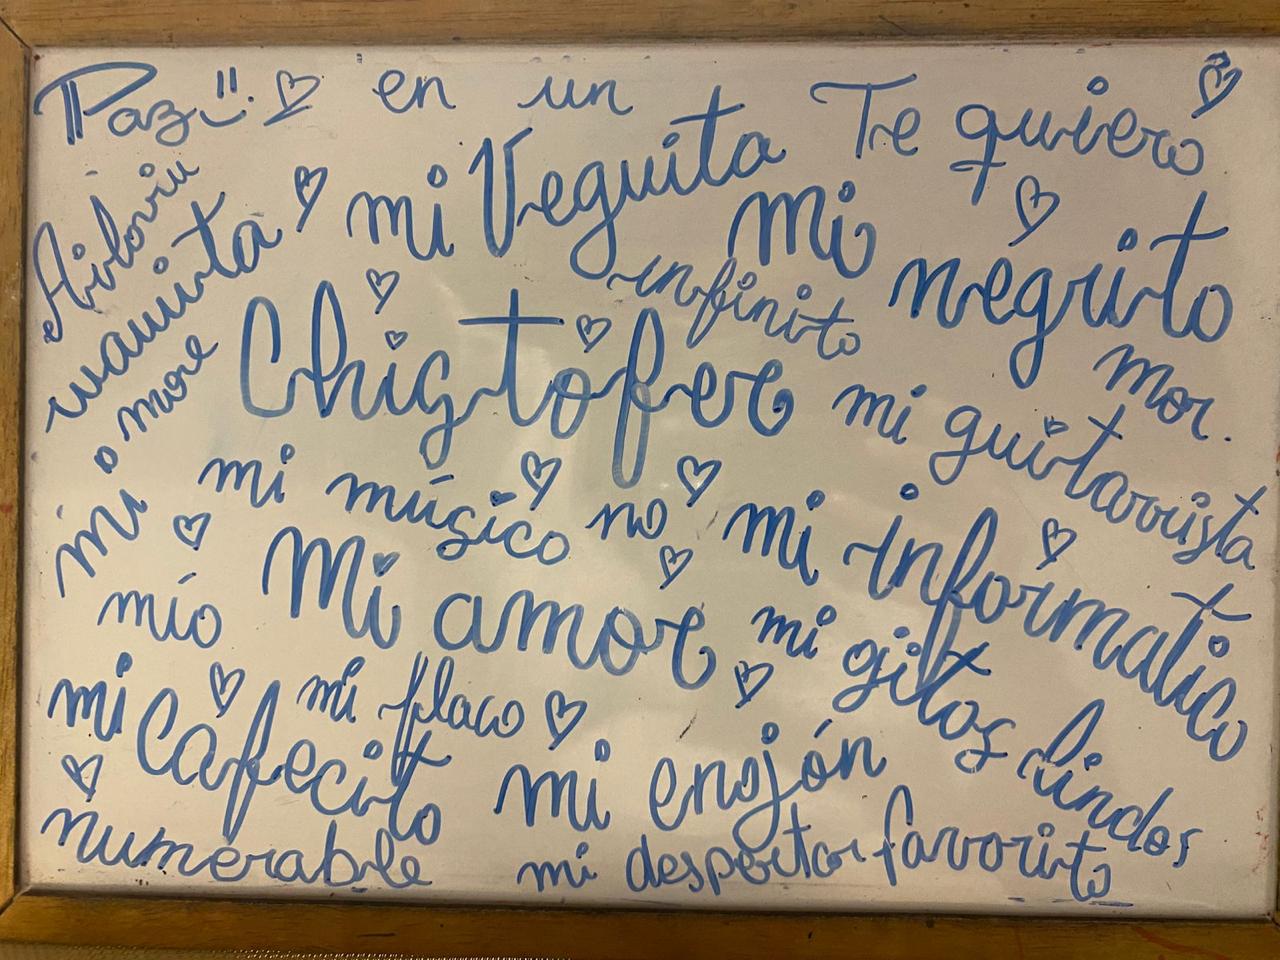 Paz =) en un Te quiero
Ailoviu
mi Veguita
mi negrito
infinito
mor.
Chigtofer
mi guitarrista
mi músico no mi informatico
mi amore
mío Mi amor mi gitos lindos
mi Cafecito mi flaco
mi enojón
numerable mi despertar favorito